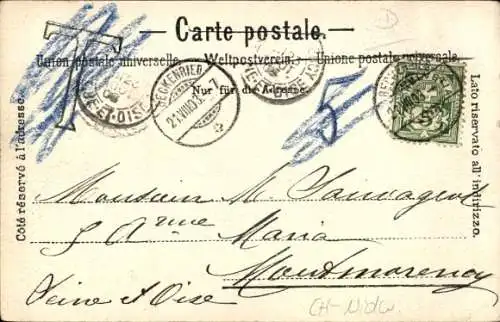 Carte postale.
Union postale universelle. Weltpostverein. Unione postale universale.
Nur für die Adresse.
Côté réservé à l'adresse.
Lato riservato all'indirizzo.
T
5
BECKENRIED
ET-OISE
Monsieur M. Sauvageot
5 Ame Maria
Montmorency
Seine et Oise
CH-Nidw